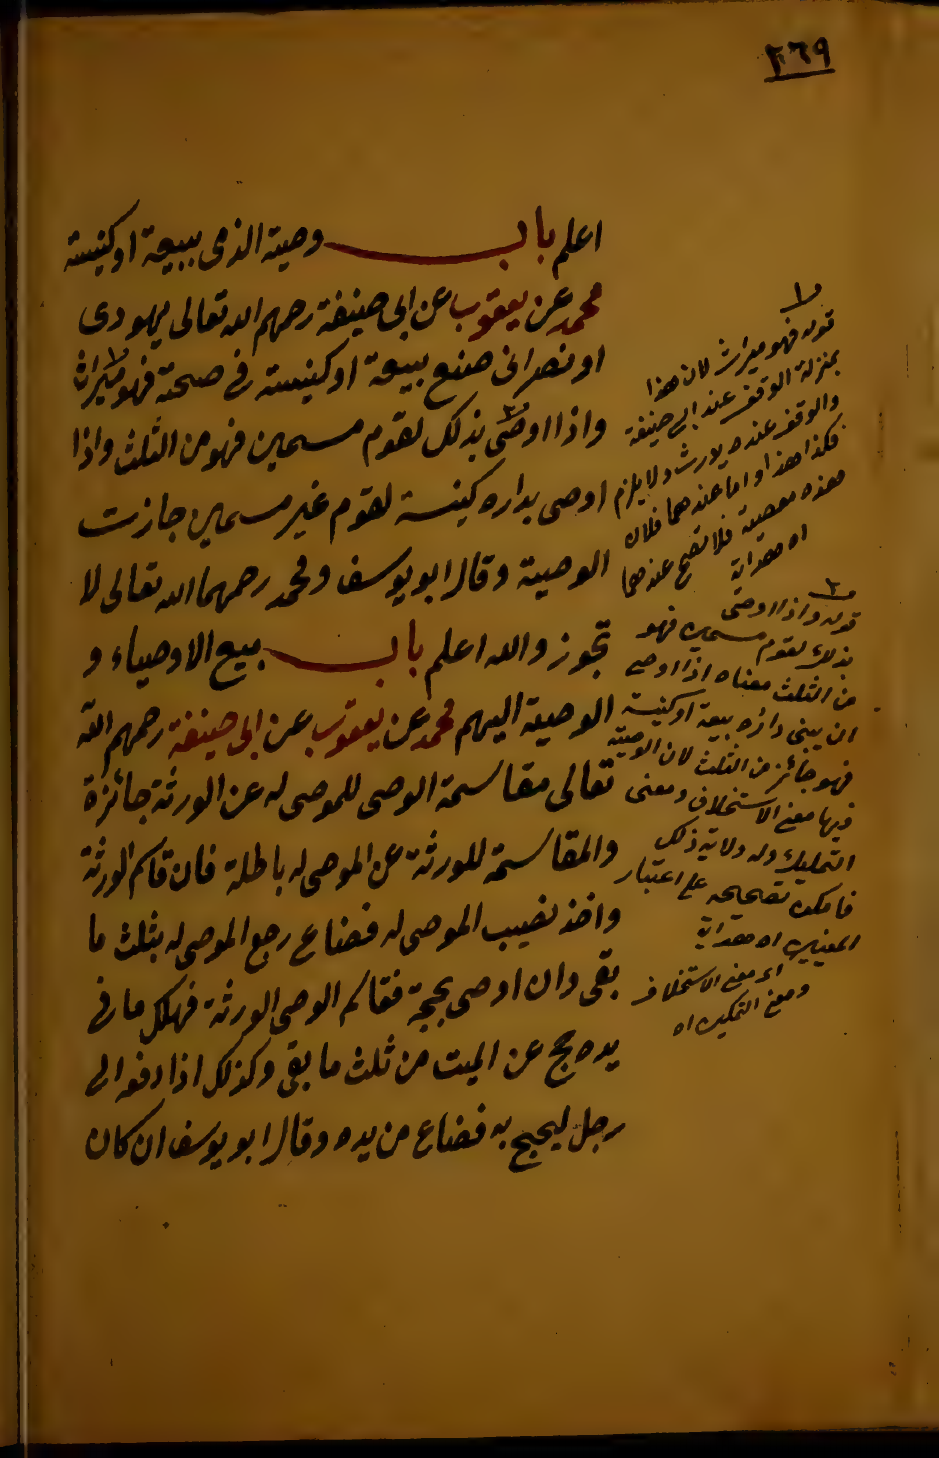 ٢٦٩
اعلم باب وصية الذمى ببيعة او كنيسة
محمد عن يعقوب عن ابى حنيفة رحمهم الله تعالى يهودى
او نصرانى صنع بيعة او كنيسة فى صحته فهو ميراث
واذا اوصى بذلك لقوم مسمين فهو من الثلث واذا
اوصى بداره كنيسة لقوم غير مسمين جازت
الوصية وقال ابو يوسف ومحمد رحمهما الله تعالى لا
تجوز والله اعلم باب بيع الاوصياء و
الوصية اليهم محمد عن يعقوب عن ابى حنيفة رحمهم الله
تعالى مقاسمة الوصى للموصى له عن الورثة جائزة
والمقاسمة للورثة عن الموصى له باطلة فان قاسم الورثة
واخذ نصيب الموصى له فضاع رجع الموصى له بثلث ما
بقى وان اوصى بحجة فقاسم الوصى الورثة فهلك ما فى
يده حج عن الميت من ثلث ما بقى وكذلك اذا دفعه الى
رجل ليحج به فضاع من يده وقال ابو يوسف ان كان
١
قوله فهو ميراث لان هذا
بمنزلة الوقف عند ابى حنيفة
والوقف عنده يورث ولا يلزم
فكذا هذا واما عندهما فلان
هذه معصية فلا تصح عندهما
اه هداية
٢
قوله واذا اوصى
بذلك لقوم مسمين فهو
من الثلث معناه اذا اوصى
ان يبنى داره بيعة او كنيسة
فهو جائز من الثلث لان الوصية
فيها معنى الاستخلاف ومعنى
التمليك وله ولاية ذلك
فامكن تصحيحه على اعتبار
المعنيين اه هداية
اى معنى الاستخلاف
ومعنى التمليك اه